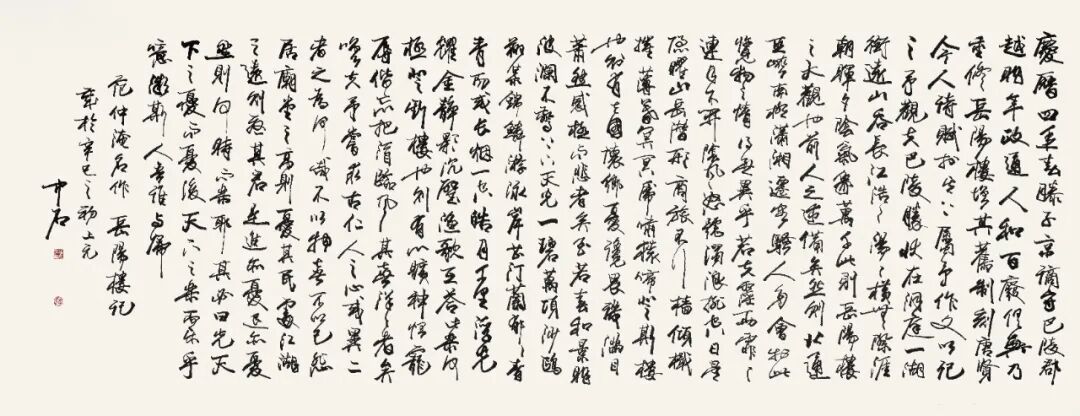 慶曆四年春滕子京謫守巴陵郡
越明年政通人和百廢俱興乃
重修岳陽樓增其舊制刻唐賢
今人詩賦於其上屬予作文以記
之予觀夫巴陵勝狀在洞庭一湖
銜遠山吞長江浩〻湯〻橫無際涯
朝暉夕陰氣象萬千此則岳陽樓
之大觀也前人之述備矣然則北通
巫峽南極瀟湘遷客騷人多會於此
覽物之情得無異乎若夫霪雨霏〻
連月不開陰風怒號濁浪排空日星
隱曜山岳潛形商旅不行檣傾檝
摧薄暮冥冥虎嘯猿啼登斯樓
也則有去國懷鄉憂讒畏譏滿目
蕭然感極而悲者矣至若春和景明
波瀾不驚上下天光一碧萬頃沙鷗
翔集錦鱗游泳岸芷汀蘭郁〻青
青而或長烟一空皓月千里浮光
耀金靜影沉璧漁歌互答此樂何
極登斯樓也則有心曠神怡寵
辱偕忘把酒臨風其喜洋〻者矣
嗟夫予嘗求古仁人之心或異二
者之為何哉不以物喜不以己悲
居廟堂之高則憂其民處江湖
之遠則憂其君是進亦憂退亦憂
然則何時而樂耶其必曰先天
下之憂而憂後天下之樂而樂乎
噫微斯人吾誰與歸
范仲淹名作岳陽樓記
書於辛巳之初上元
中石